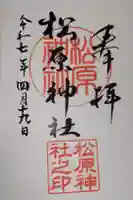 奉拝
松原神社
松原神社
松原神社之印
令和七年四月十九日